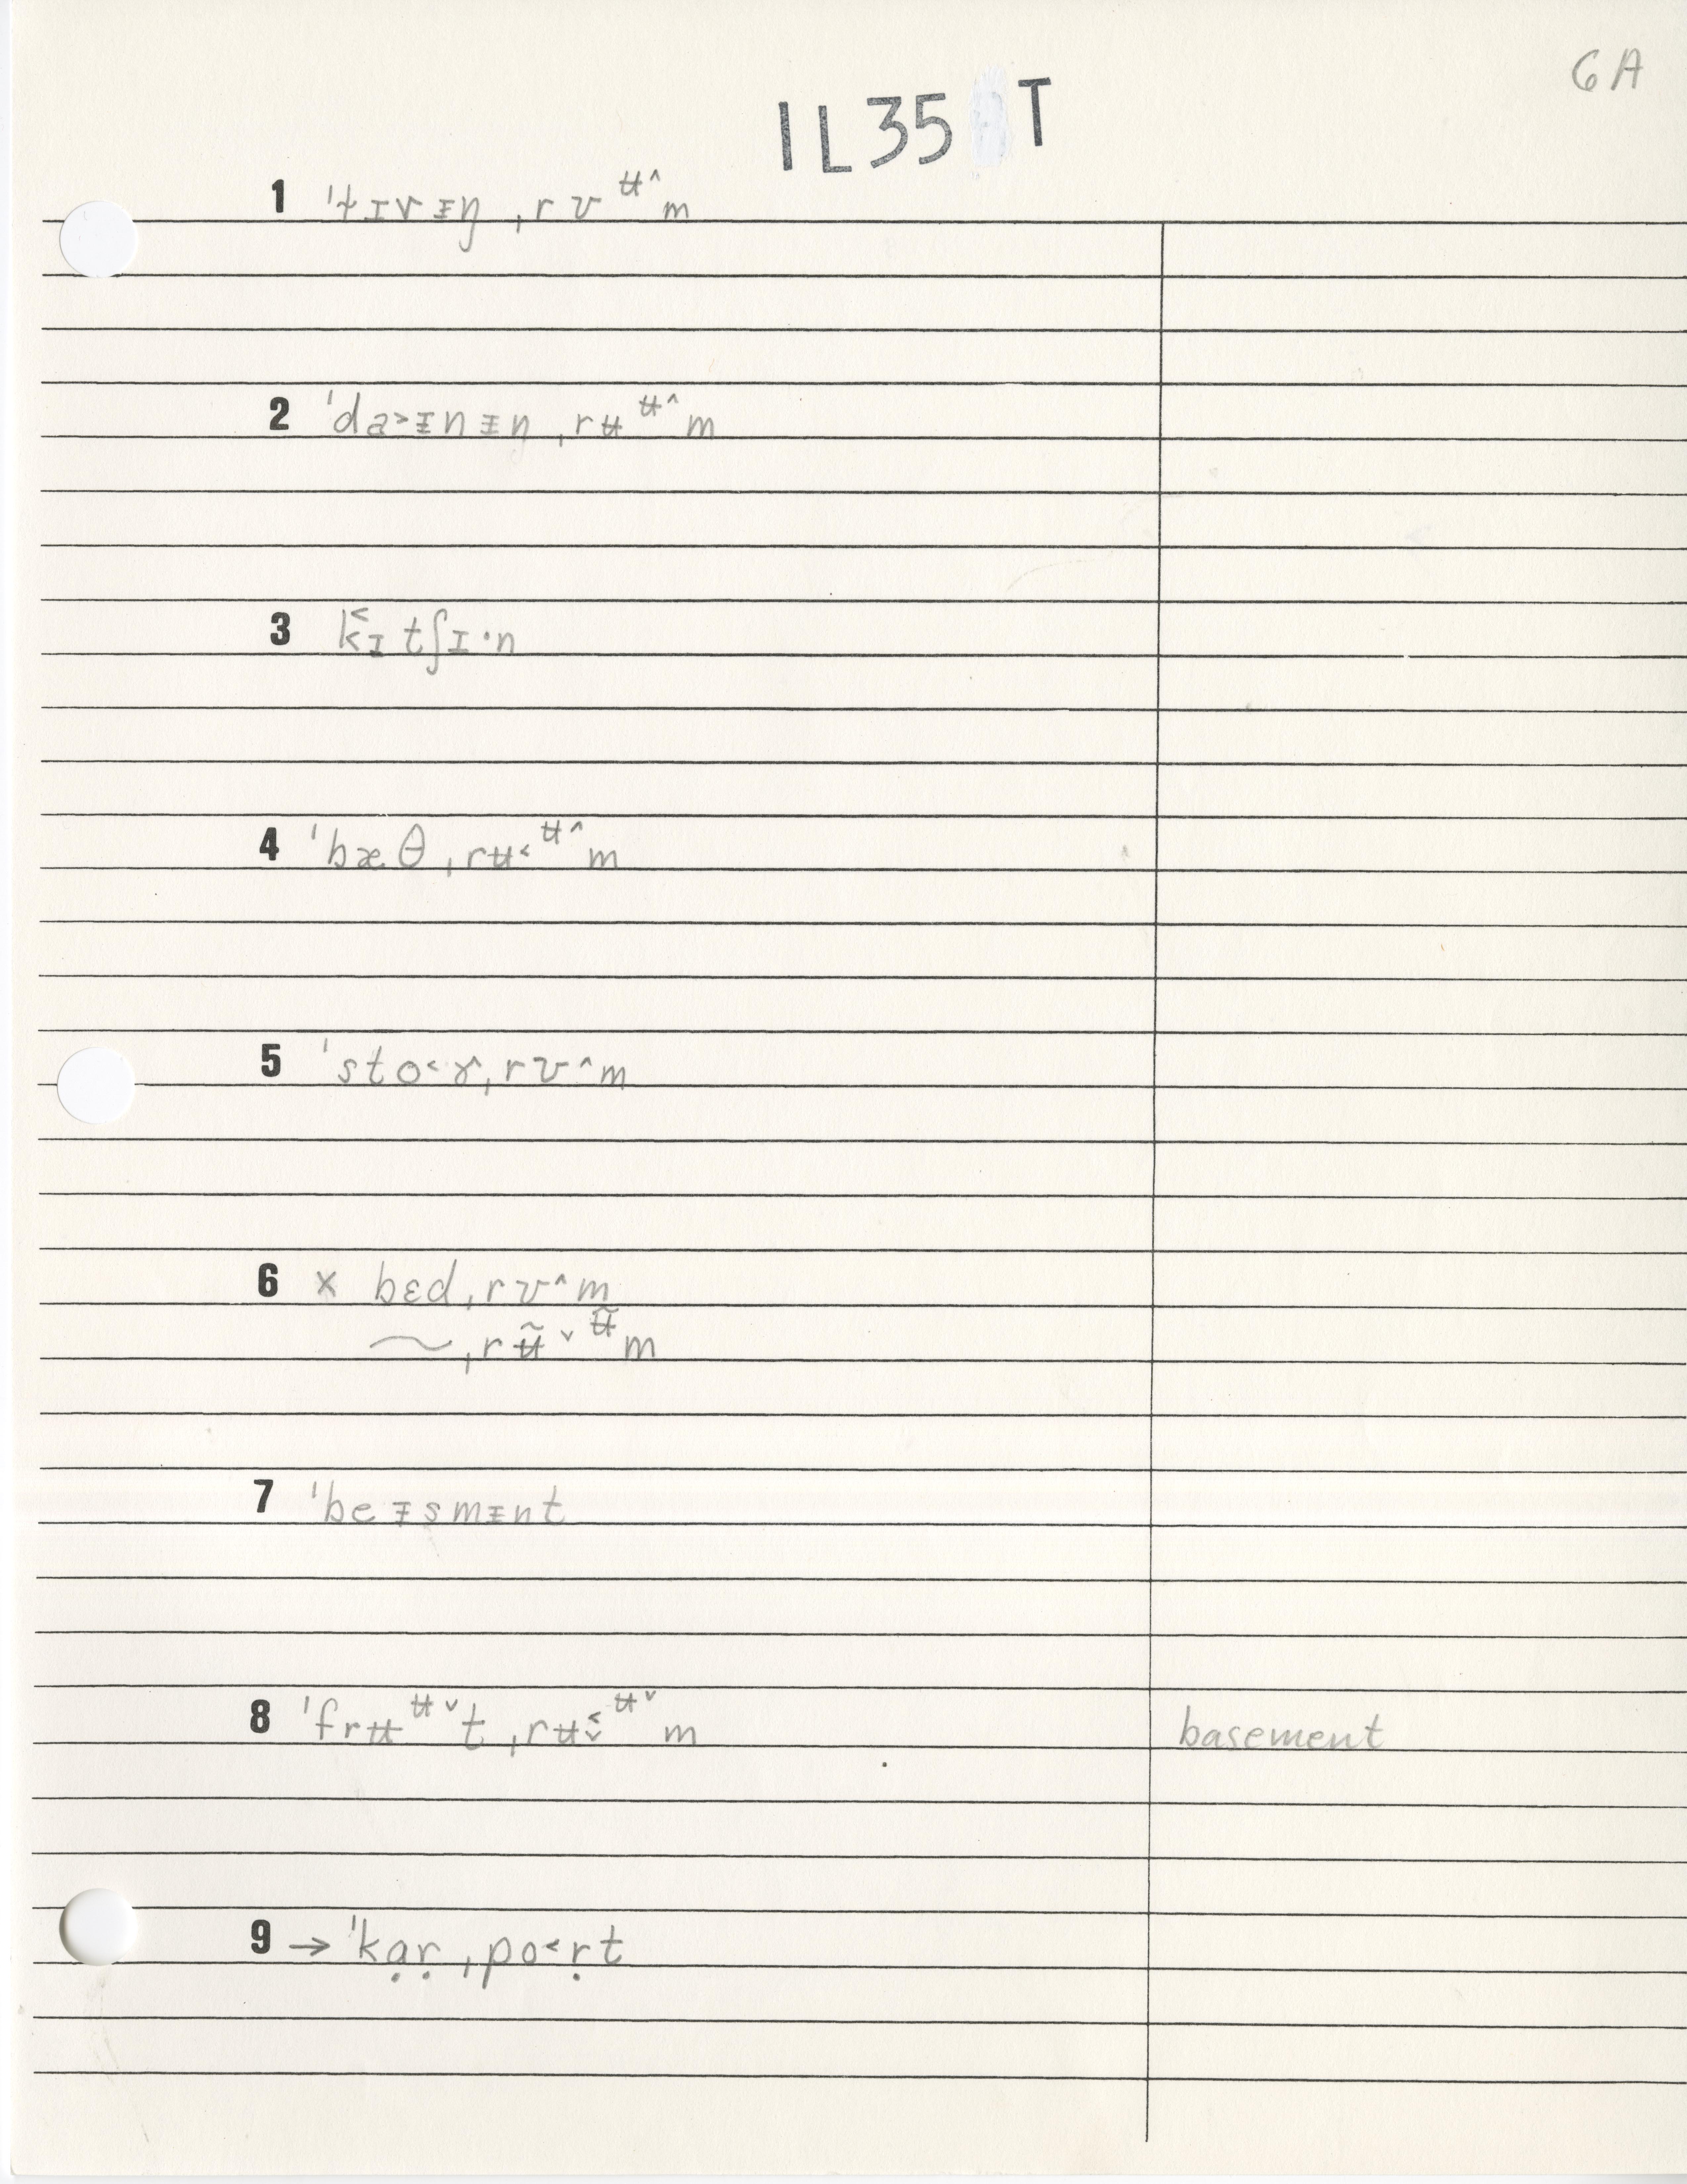 6A
IL35 T
1 ˈɫɪvᵻŋ ˌrʊ ᵾ^m
2 ˈda˃ᵻnᵻŋ ˌrᵾ ᵾ^m
3 k̬˂ɪtʃɪ·n
4 ˈbæθ ˌrᵾ˂ ᵾ^m
5 ˈsto˂ɚˌrʊ^m
6 × bɛdˌrʊ^m
⁓ˌrᵾ̃˅ ᵾ̃m
7 ˈbeᵻsmᵻnt
8 ˈfrᵾᵾ˅t ˌrᵾ˂˅ᵾ˅m basement
9 → ˈkạṛ ˌpo˂ṛt